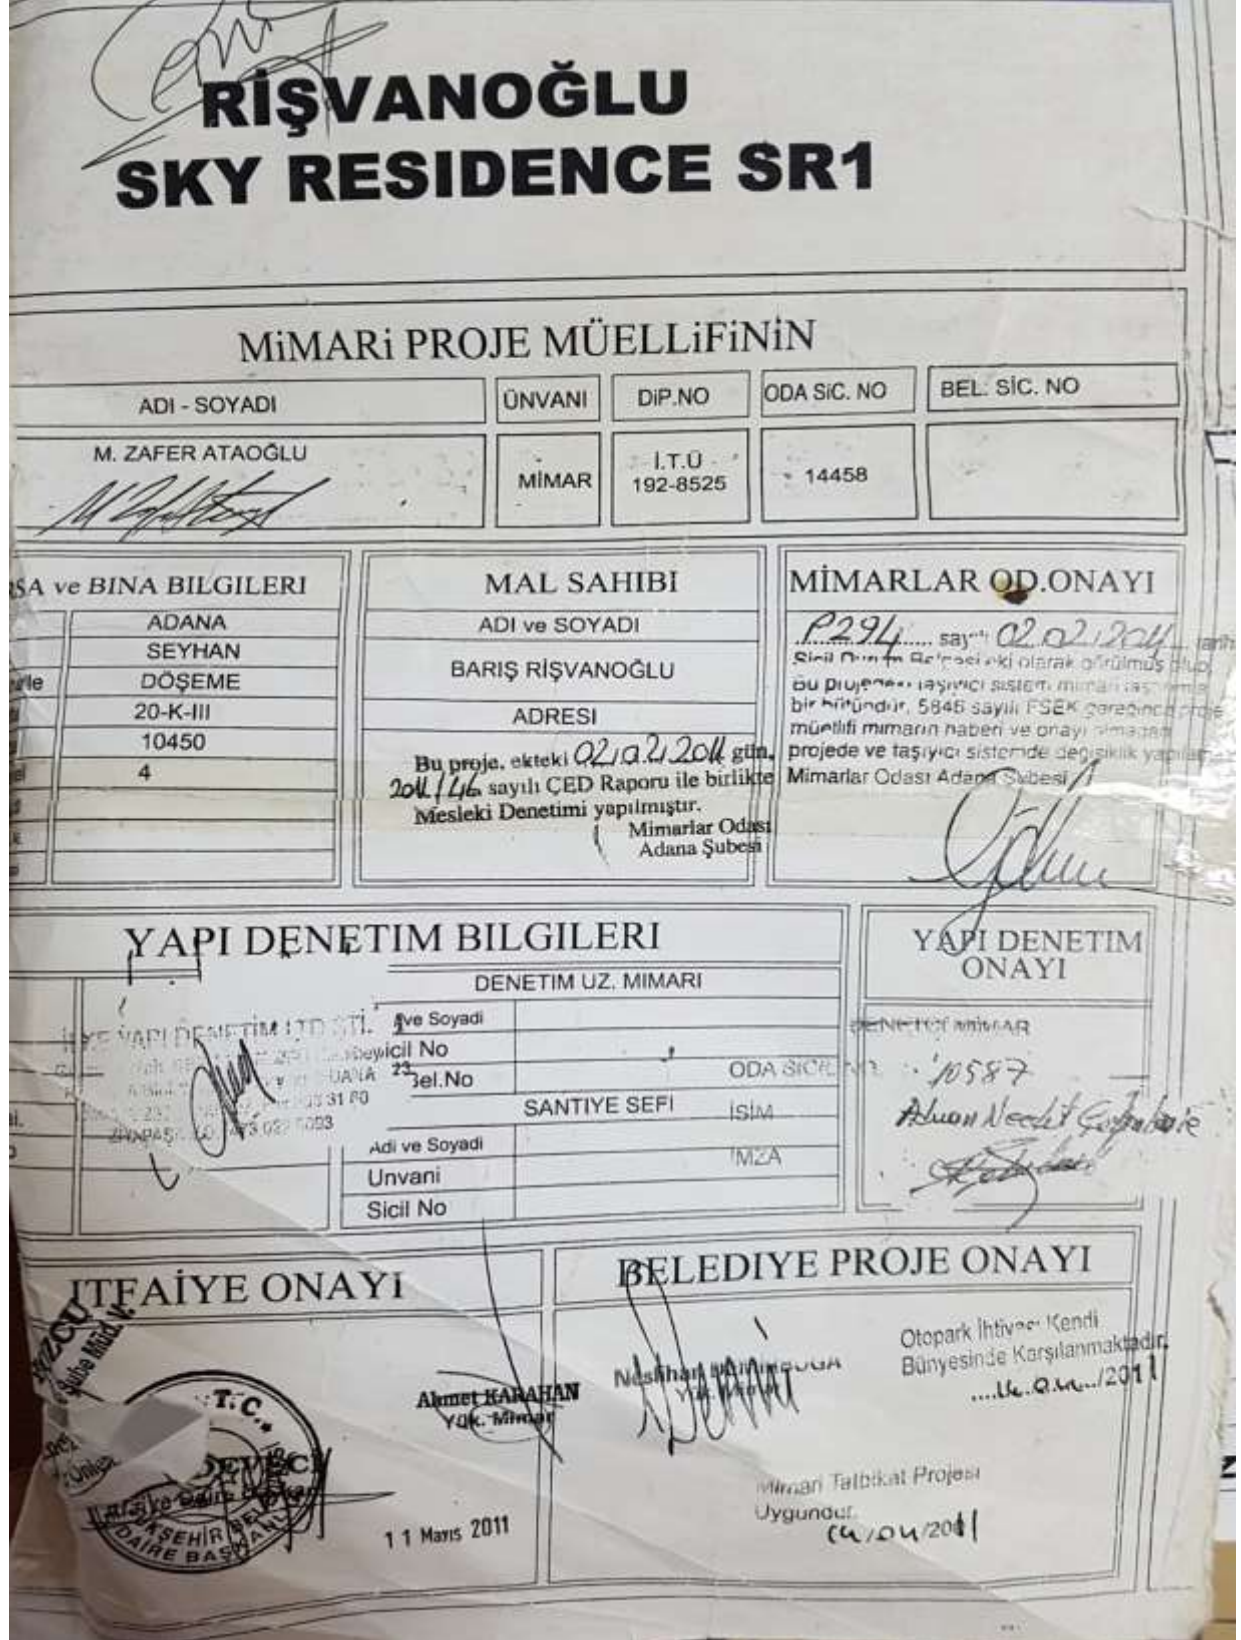 RİŞVANOĞLU
SKY RESIDENCE SR1
MiMARi PROJE MÜELLiFiNiN
ADI - SOYADI
ÜNVANI
DiP.NO
ODA SiC. NO
BEL. SİC. NO
M. ZAFER ATAOĞLU
MİMAR
İ.T.Ü
192-8525
14458
SA ve BINA BILGILERI
ADANA
SEYHAN
DÖŞEME
20-K-III
10450
4
MAL SAHIBI
ADI ve SOYADI
BARIŞ RİŞVANOĞLU
ADRESI
Bu proje, ekteki 02.02.2011 gün,
2011/46 sayılı ÇED Raporu ile birlikte
Mesleki Denetimi yapılmıştır.
Mimarlar Odası
Adana Şubesi
MİMARLAR OD.ONAYI
P294 sayılı 02.02.2011 tarih
Sicil Durum Belgesi eki olarak görülmüş olup,
bir bütündür, 5846 sayılı FSEK gereğince proje
müellifi mimarın haberi ve onayı olmadan
projede ve taşıyıcı sistemde değişiklik
Mimarlar Odası Adana Şubesi
YAPI DENETIM BILGILERI
DENETIM UZ. MIMARI
ve Soyadi
icil No
Bel.No
SANTIYE SEFI
Adi ve Soyadi
Unvani
Sicil No
YAPI DENETİM LTD ŞTİ.
YAPI DENETIM
ONAYI
DENETÇİ MİMAR
ODA SİCİL NO : 10587
İSİM
İMZA
ITFAİYE ONAYI
Şube Müd. V.
T.C.
Ahmet KARAHAN
Yük. Mimar
11 Mayıs 2011
BELEDIYE PROJE ONAYI
Neslihan
Yük. Mimar
Otopark İhtiyacı Kendi
Bünyesinde Karşılanmaktadır.
/2011
Mimari Tatbikat Projesi
Uygundur.
04/04/2011